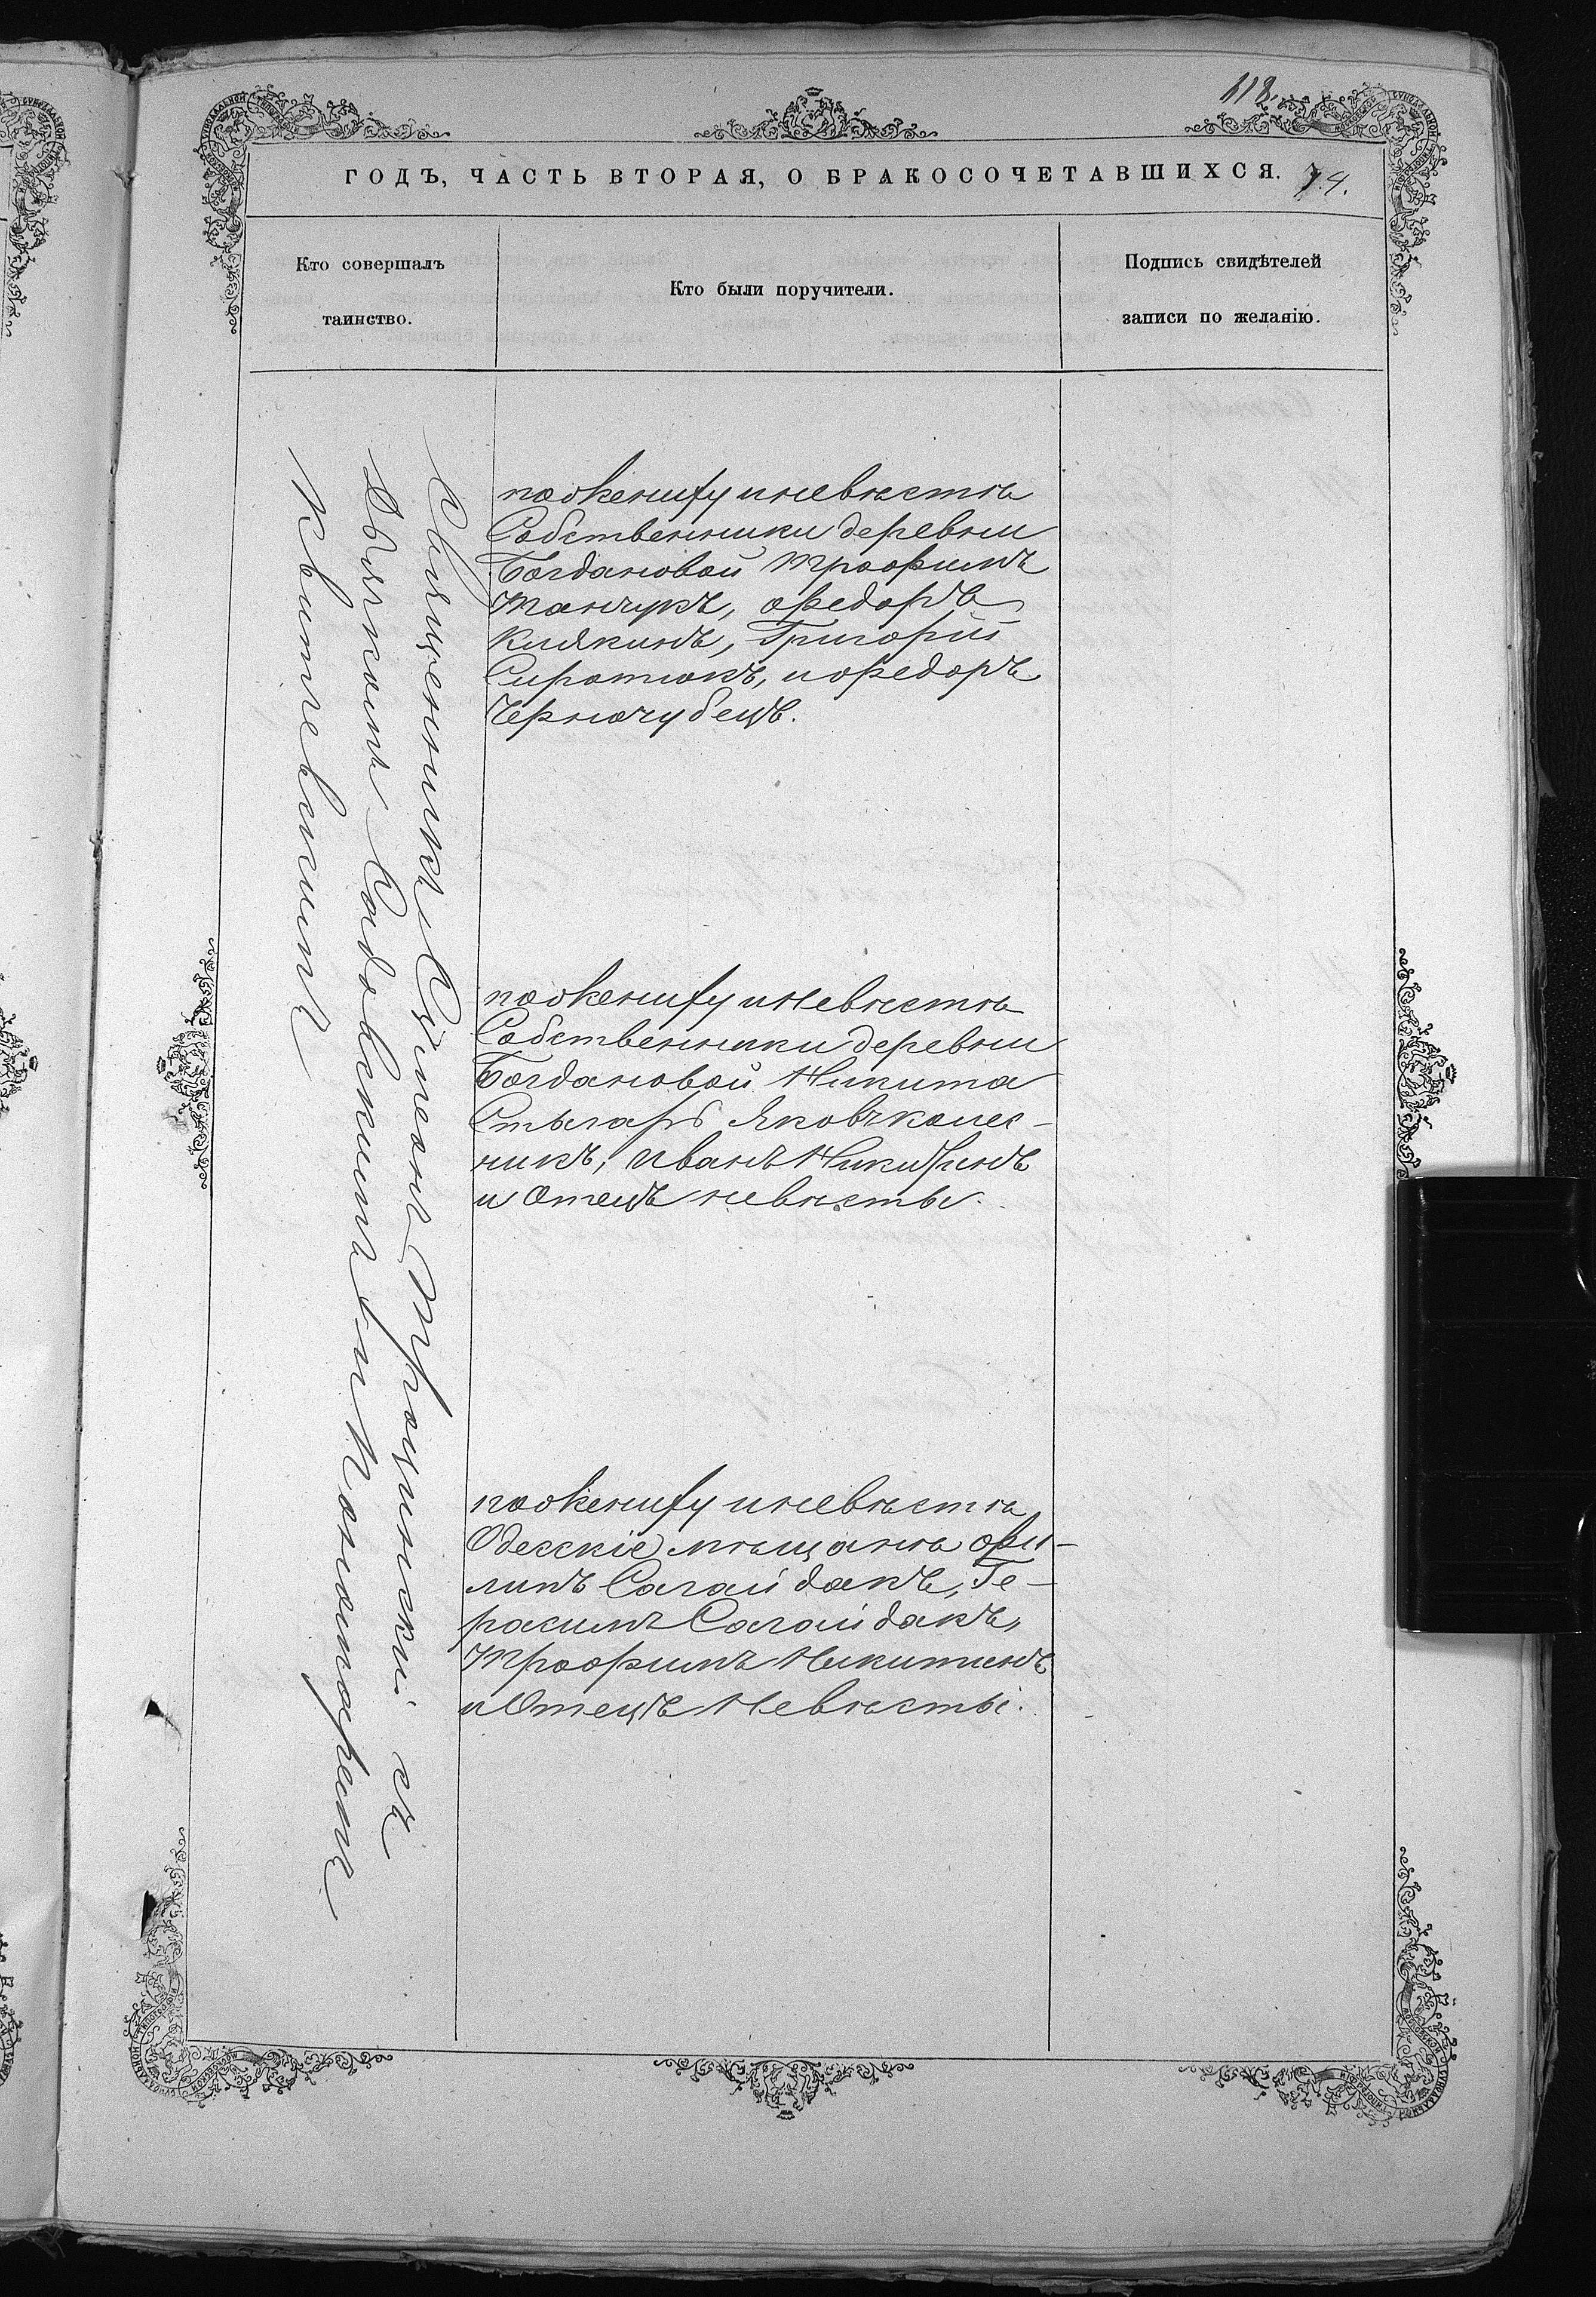 118.
ГОДЪ, ЧАСТЬ ВТОРАЯ, О БРАКОСОЧЕТАВШИХСЯ. 74.
Кто совершалъ
таинство.
Кто были поручители.
Подпись свидѣтелей
записи по желанію.
Священникъ Сѵмеонъ Троцинскій съ
Дьячкомъ Садовскимъ и Пономаремъ
Квитневскимъ
по Жениху и невѣстѣ
Собственники деревни
Богдановой Трофимъ
Танчукъ, Федоръ
Килкинъ, Григорій
Сиротюкъ, и Федоръ
Черночубецъ.
по Жениху и Невѣстѣ
Собственники деревни
Богдановой Никита
Столяръ Яковъ Колес-
никъ, Иванъ Никитинъ
и Отецъ невѣсты.
по Жениху и невѣстѣ
Одесскіе мѣщане Фи-
липъ Сагайдакъ, Ге-
расимъ Сагайдакъ,
Трофимъ Никитинъ
и Отецъ Невѣсты.